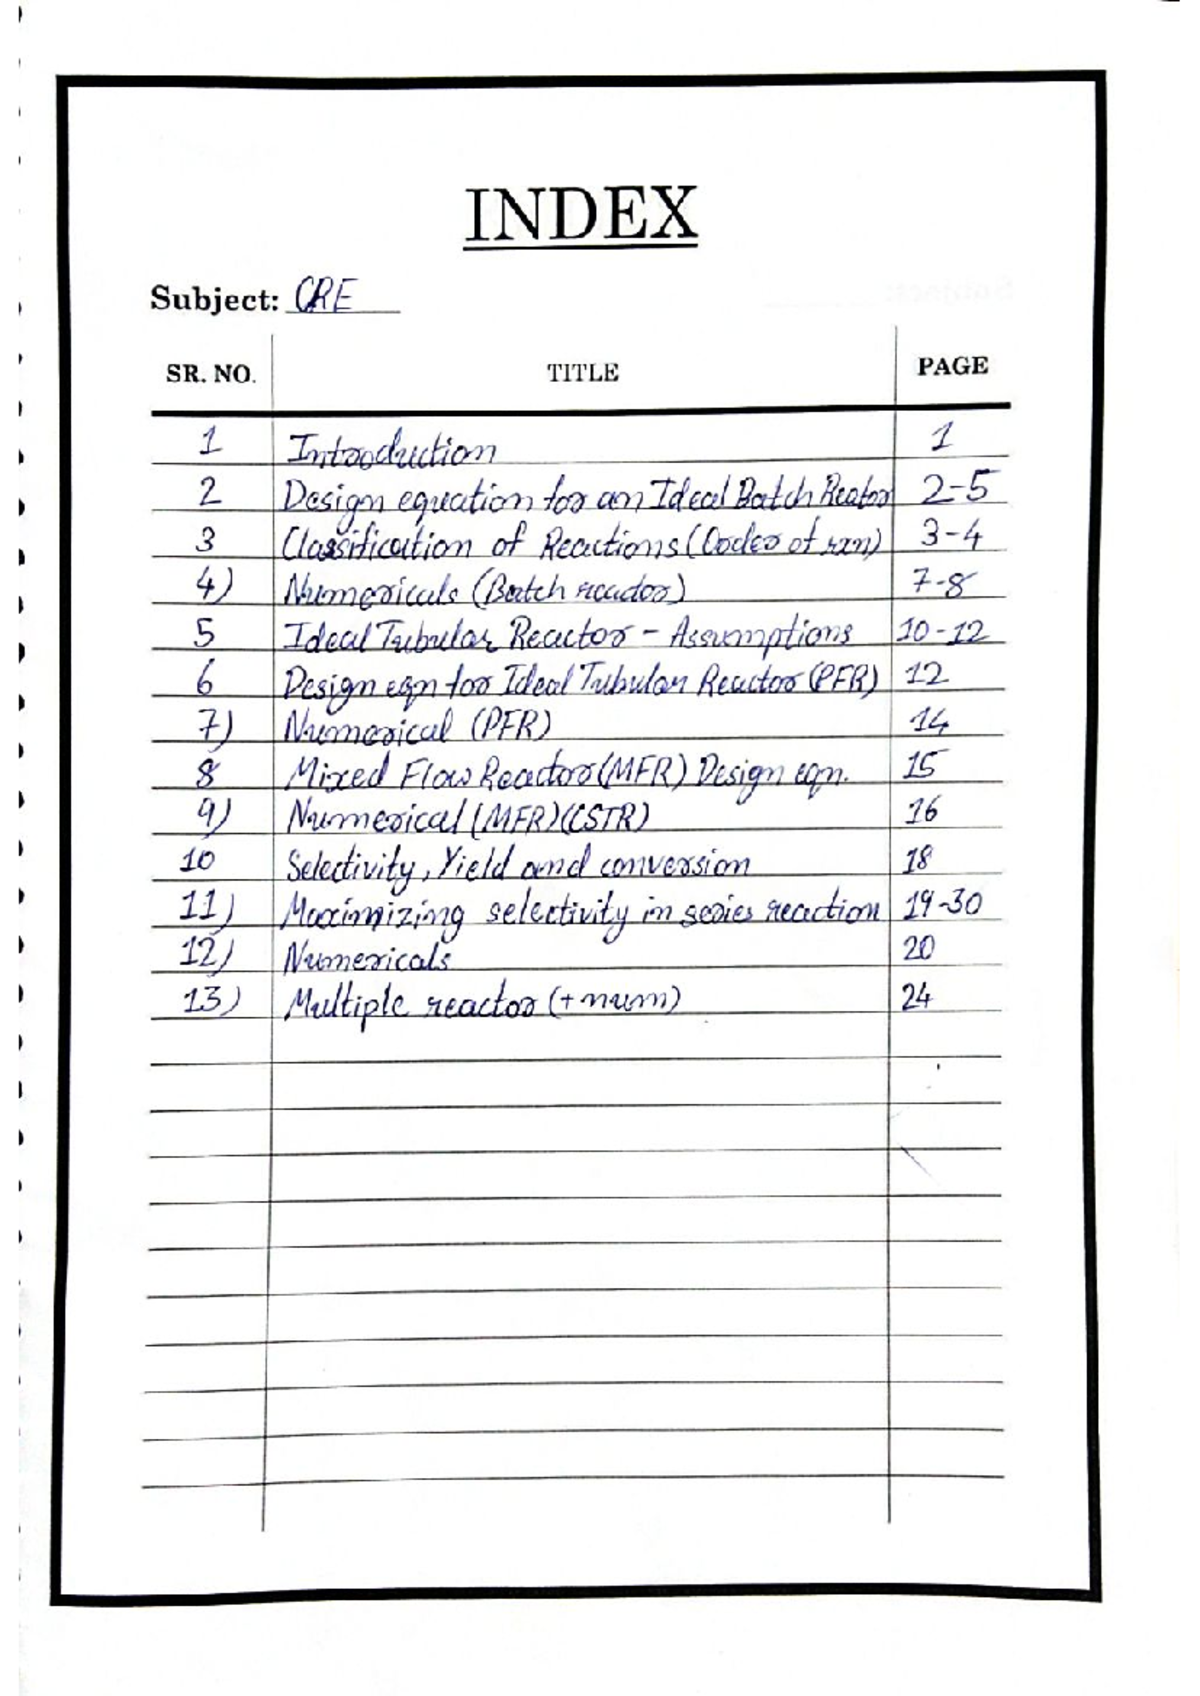 INDEX
Subject: CRE
SR. NO. TITLE PAGE
1 Introduction 1
2 Design equation for an Ideal Batch Reator 2-5
3 Classification of Reactions (Order of rxn) 3-4
4) Numericals (Batch reactor) 7-8
5 Ideal Tubular Reactor - Assumptions 10-12
6 Design eqn for Ideal Tubular Reactor (PFR) 12
7) Numerical (PFR) 14
8 Mixed Flow Reactor (MFR) Design eqn. 15
9) Numerical (MFR) (CSTR) 16
10 Selectivity, Yield and conversion 18
11) Maximizing selectivity in series reaction 19-30
12) Numericals 20
13) Multiple reactor (+num) 24